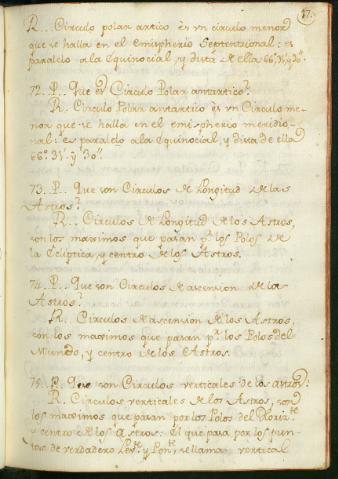 57.
R... Circulo polar artico es vn circulo menor
que se halla en el emispherio Septentrional: es
paralelo a la Equinocial, y dista de ella 66.° 31' y 30''.
72. P.. Que es Circulo Polar antartico?
R. Circulo Polar antartico es vn Circulo me-
nor que se halla en el emispherio meridio-
nal: es paralelo ala Equinocial, y dista de ella
66.° 31' y 30''.
73. P.. Que son Circulos de Longitud de las
Astros?
R.. Circulos de Longitud de los Astros,
son los maximos que pasan p.r los Polos de
la Ecliptica, y centro de los Astros.
74. P.. Que son Circulos de ascension de la
Astros?
R. Circulos de ascension de los Astros,
son los maximos que pasan p.r los Polos del
Mundo, y centro de los Astros.
75. P. Que son Circulos verticales de los astros?
R. Circulos verticales de los Astros, son
los maximos que pasan por los Polos del Oriz.te
y centro de los astros: El que pasa por los pun-
tos de verdadero Lev.te y Pon.te se llama vertical